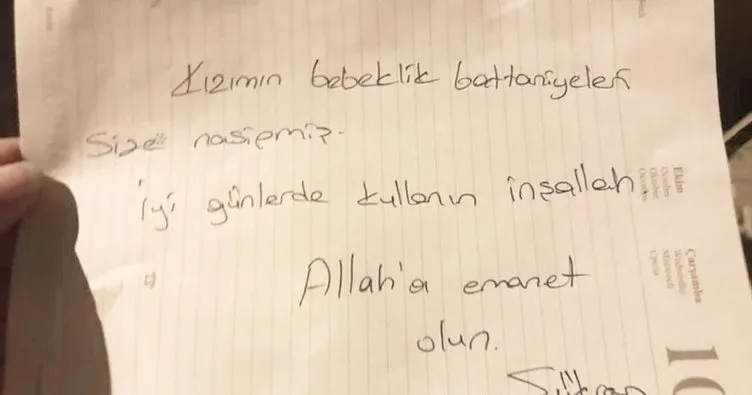 Kızımın bebeklik battaniyeleri
Size nasipmiş.
İyi günlerde kullanın inşallah
Allah'a emanet
olun.
Ekim
Çarşamba
Wednesday
Mittwoch